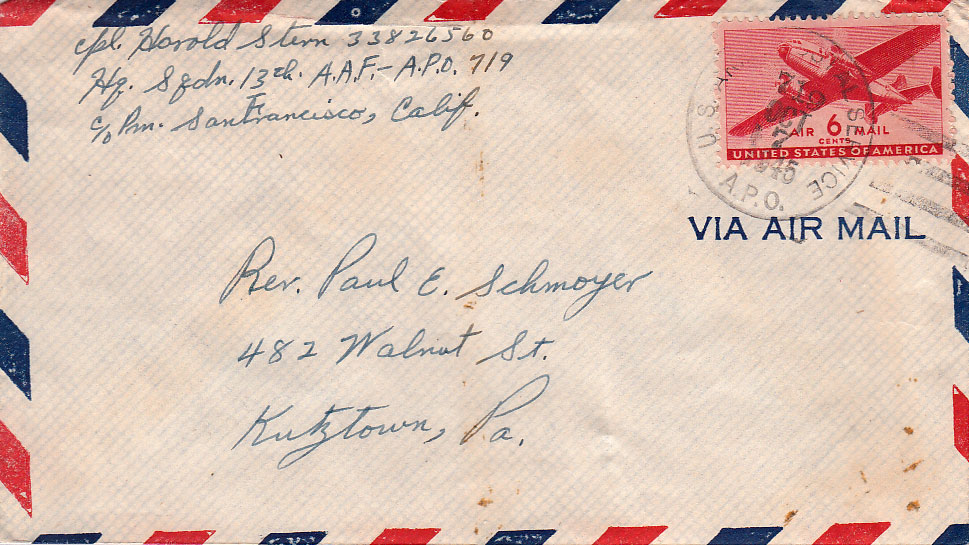 Cpl. Harold Stern 33826560
Hq. Sqdn. 13th. A.A.F. - A.P.O. 719
c/o Pm. San Francisco, Calif.
AIR 6 MAIL
CENTS
UNITED STATES OF AMERICA
U.S. SERVICE
A.P.O.
VIA AIR MAIL
Rev. Paul E. Schmoyer
482 Walnut St.
Kutztown, Pa.